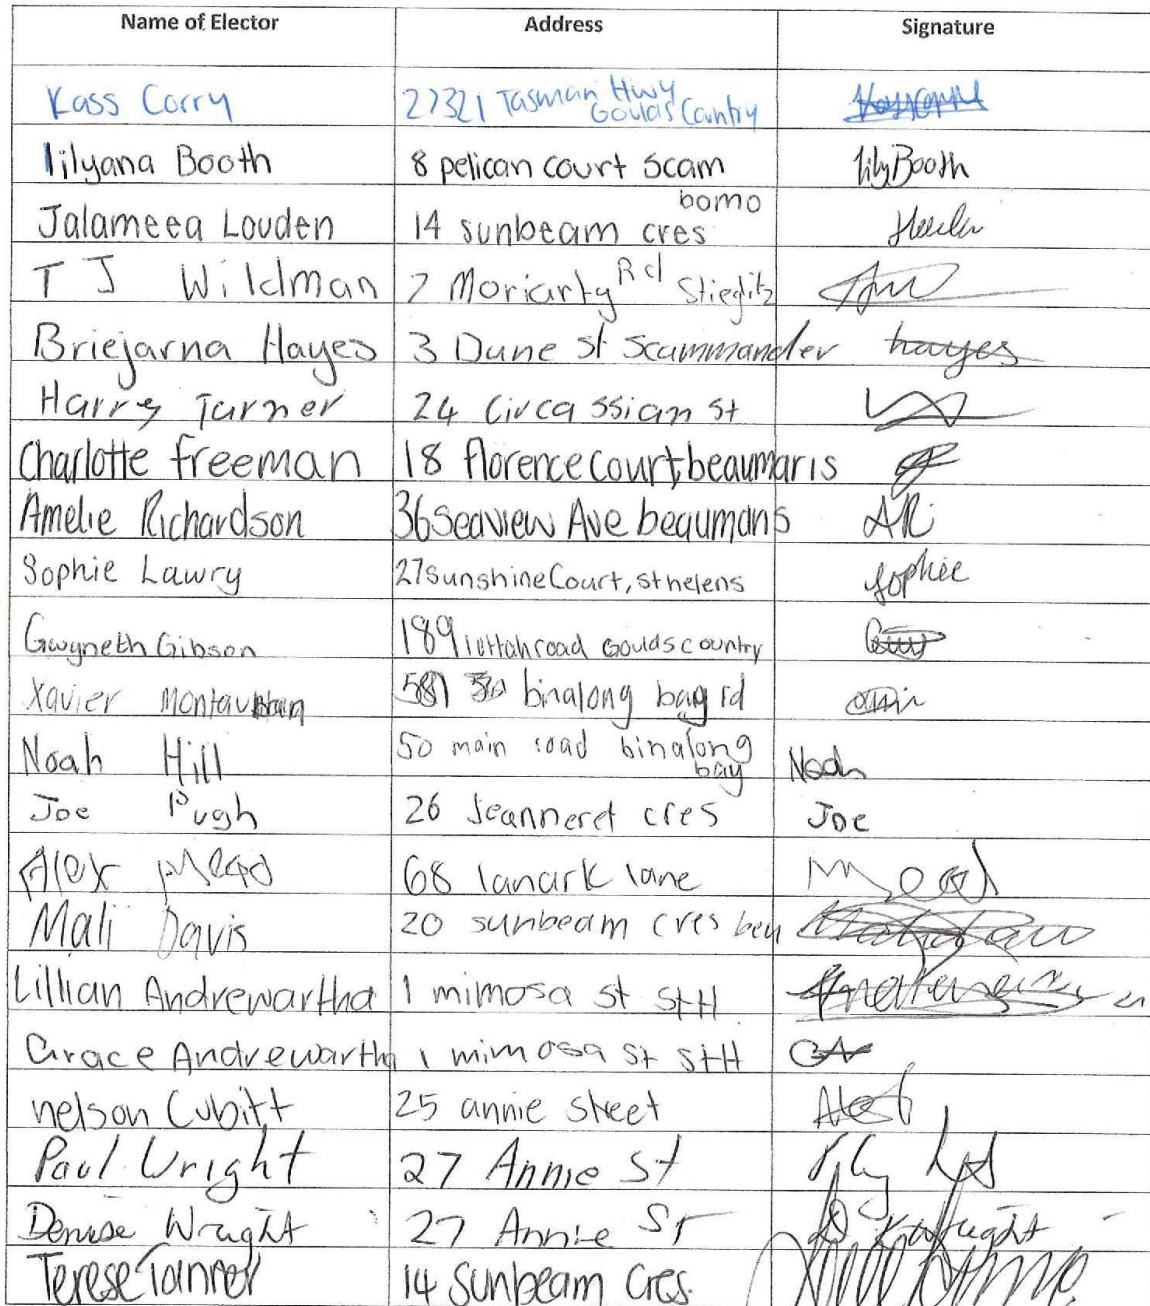 Name of Elector Address Signature
Kass Corry 27321 Tasman Hwy Goulds Country
lilyana Booth 8 pelican court scam lilyBooth
Jalameea Louden 14 sunbeam cres bomo
T J Wildman 7 Moriarty Rd Stieglitz
Briejarna Hayes 3 Dune st scammander hayes
Harry Turner 24 Circassian st
Charlotte freeman 18 florence court, beaumaris
Amelie Richardson 36 seaview Ave beaumaris AR
Sophie Lawry 27 sunshine Court, st helens Sophie
Gwyneth Gibson 189 lottah road Goulds country
Xavier 587 binalong bay rd
Noah Hill 50 main road binalong bay Noah
Joe Pugh 26 Jeanneret cres Joe
Alex Mead 68 lanark lane Mead
Mali Davis 20 sunbeam cres
Lillian Andrewartha 1 mimosa st stH
Grace Andrewartha 1 mimosa st stH GA
nelson Cubitt 25 annie street
Paul Wright 27 Annie St
Denise Wright 27 Annie St
Terese Tanner 14 Sunbeam Cres.